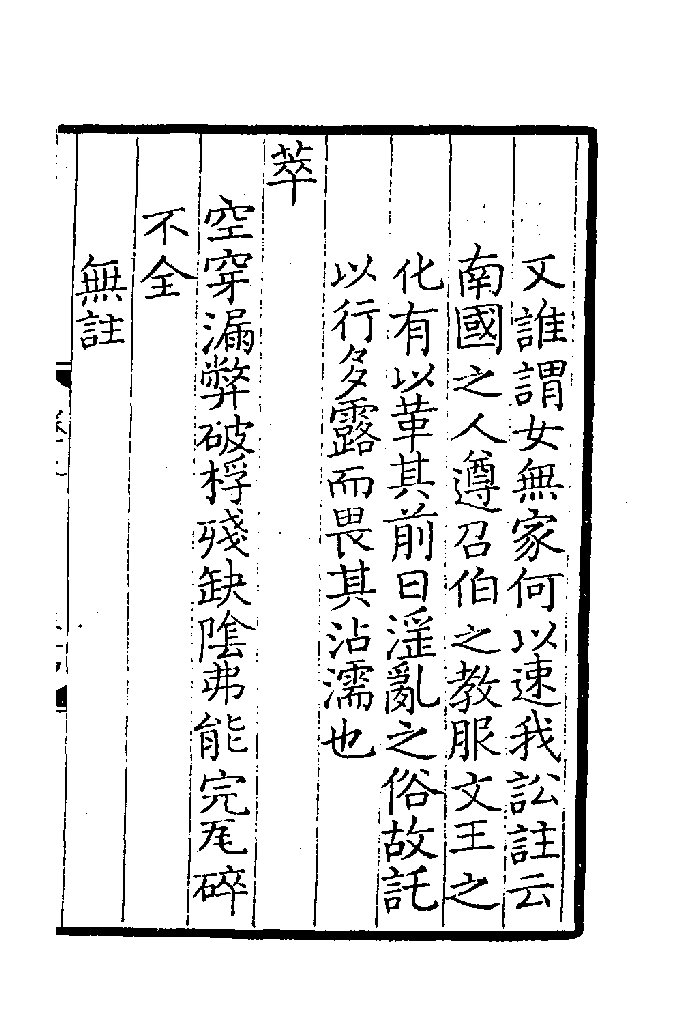 又誰謂女無家何以速我訟註云
南國之人遵召伯之教服文王之
化有以革其前日淫亂之俗故託
以行多露而畏其沾濡也
萃
空穿漏弊破桴殘缺陰弗能完瓦碎
不全
無註